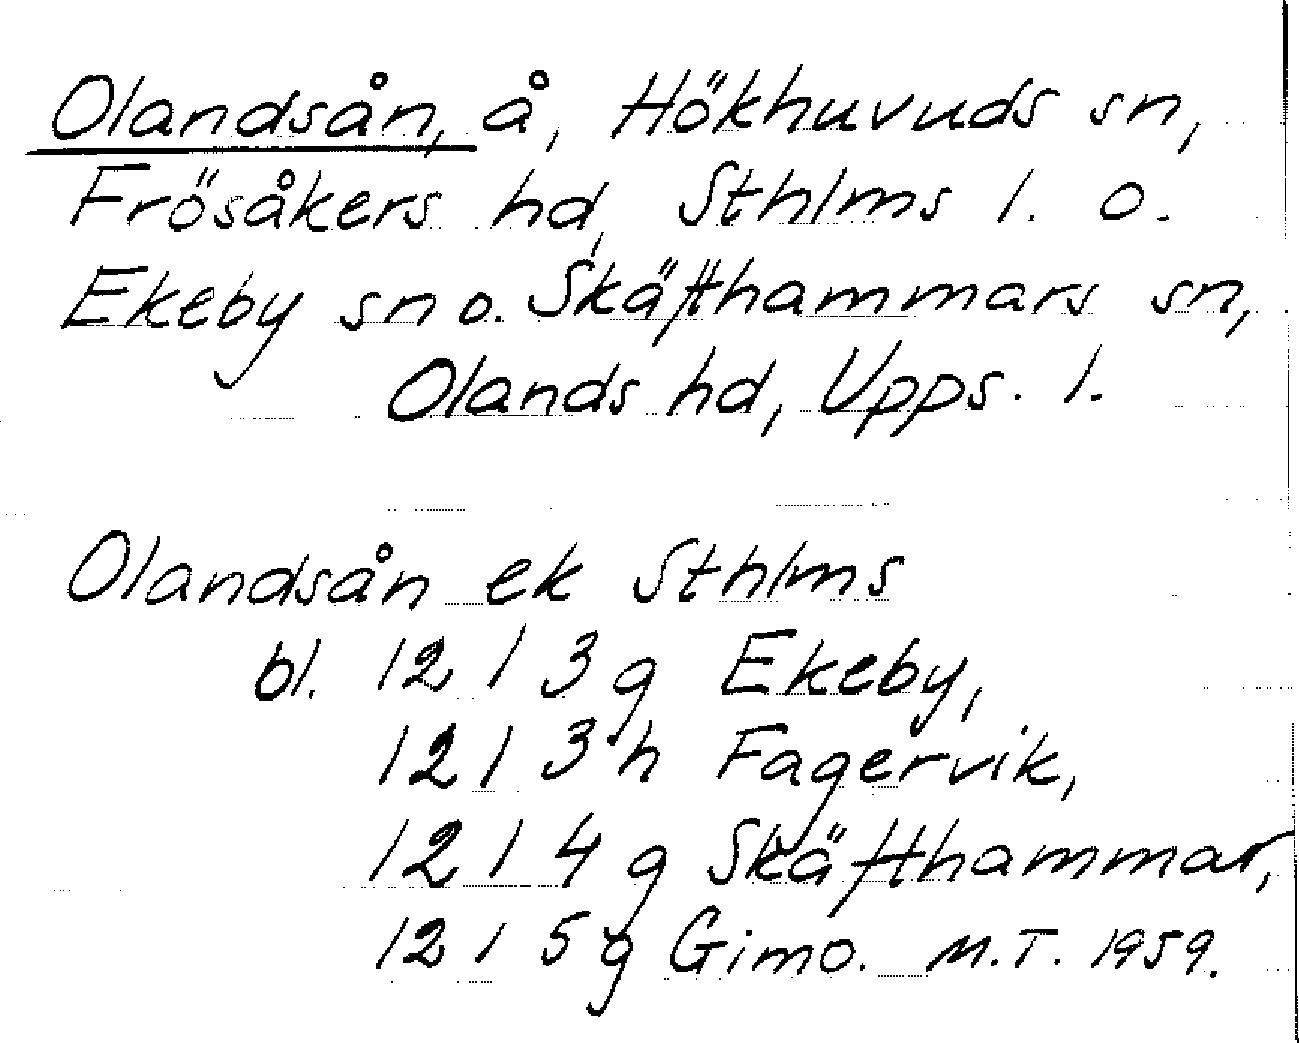 Olandsån, å, Hökhuvuds sn,
Frösåkers hd, Sthlms l. o.
Ekeby sn o. Skäfthammars sn,
Olands hd, Upps. l.
Olandsån ek Sthlms
bl. 12 I 3 g Ekeby,
12 I 3 h Fagervik,
12 I 4 g Skäfthammar,
12 I 5 g Gimo. M.T. 1959.